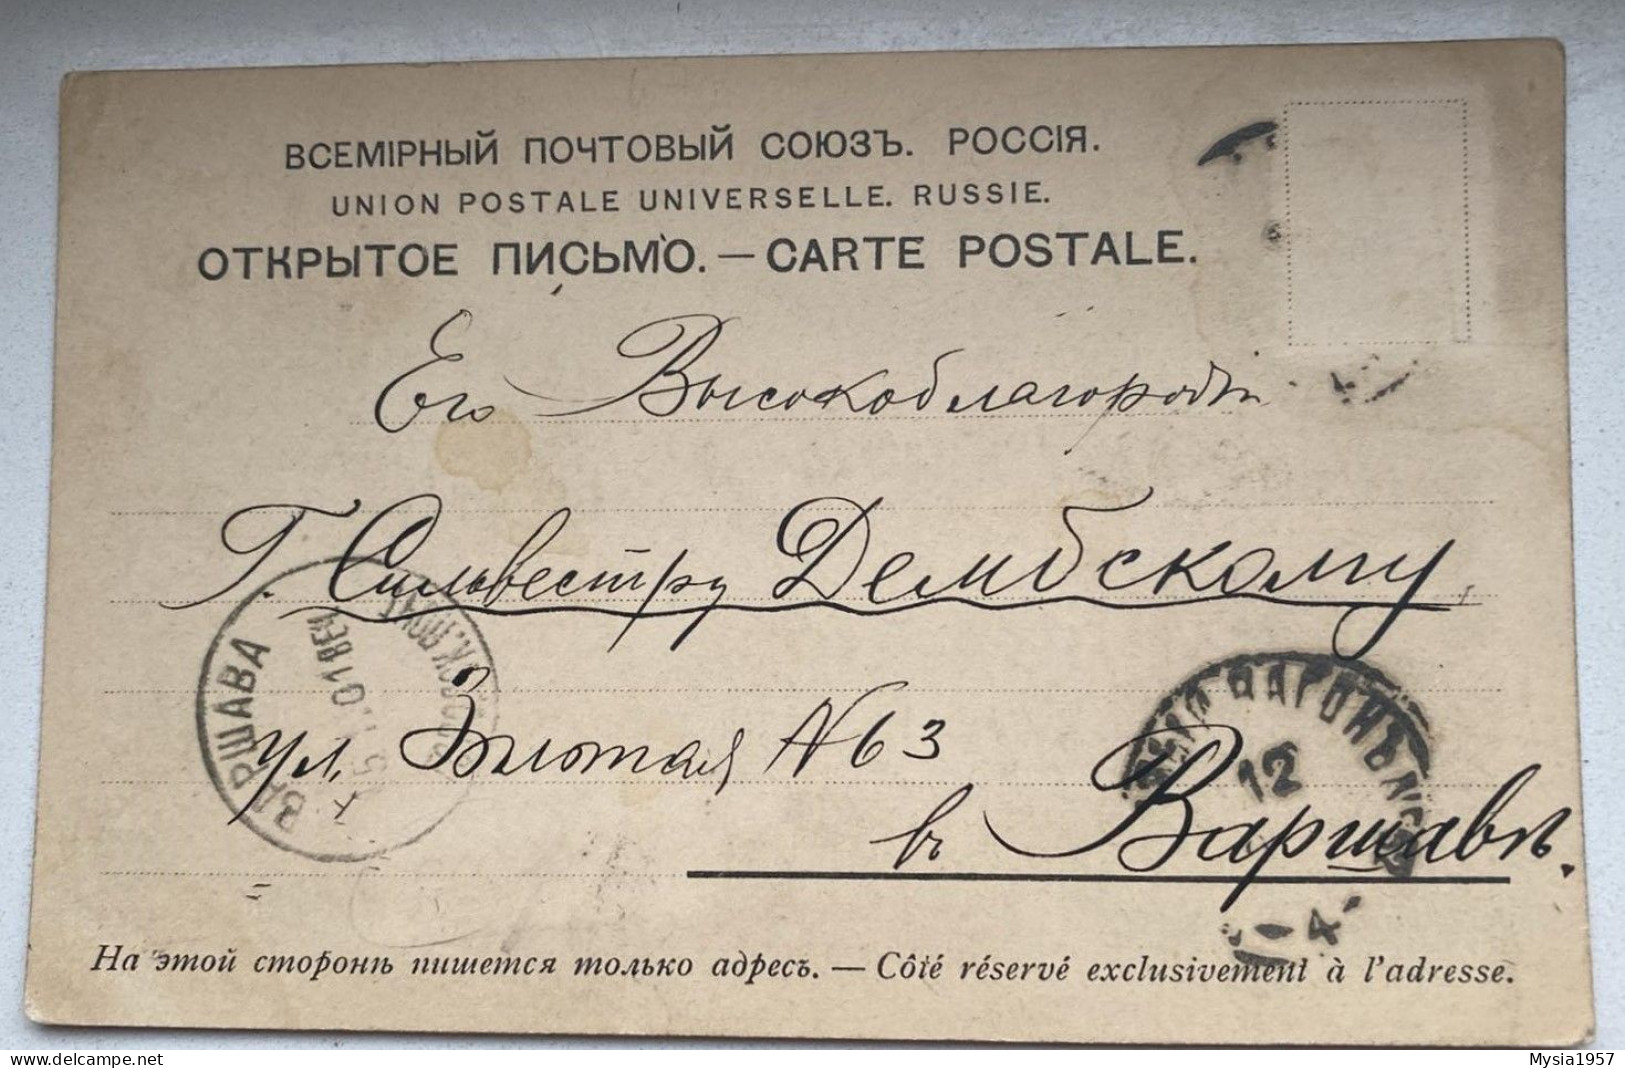 ВСЕМІРНЫЙ ПОЧТОВЫЙ СОЮЗЪ. РОССІЯ.
UNION POSTALE UNIVERSELLE. RUSSIE.
ОТКРЫТОЕ ПИСЬМО. — CARTE POSTALE.
Его Высокоблагородію
Г. Сильвестру Дембскому
ВАРШАВА
ул. Злотая № 63
12
въ Варшавѣ.
На этой сторонѣ пишется только адресъ. — Côté réservé exclusivement à l'adresse.
Mysia1957